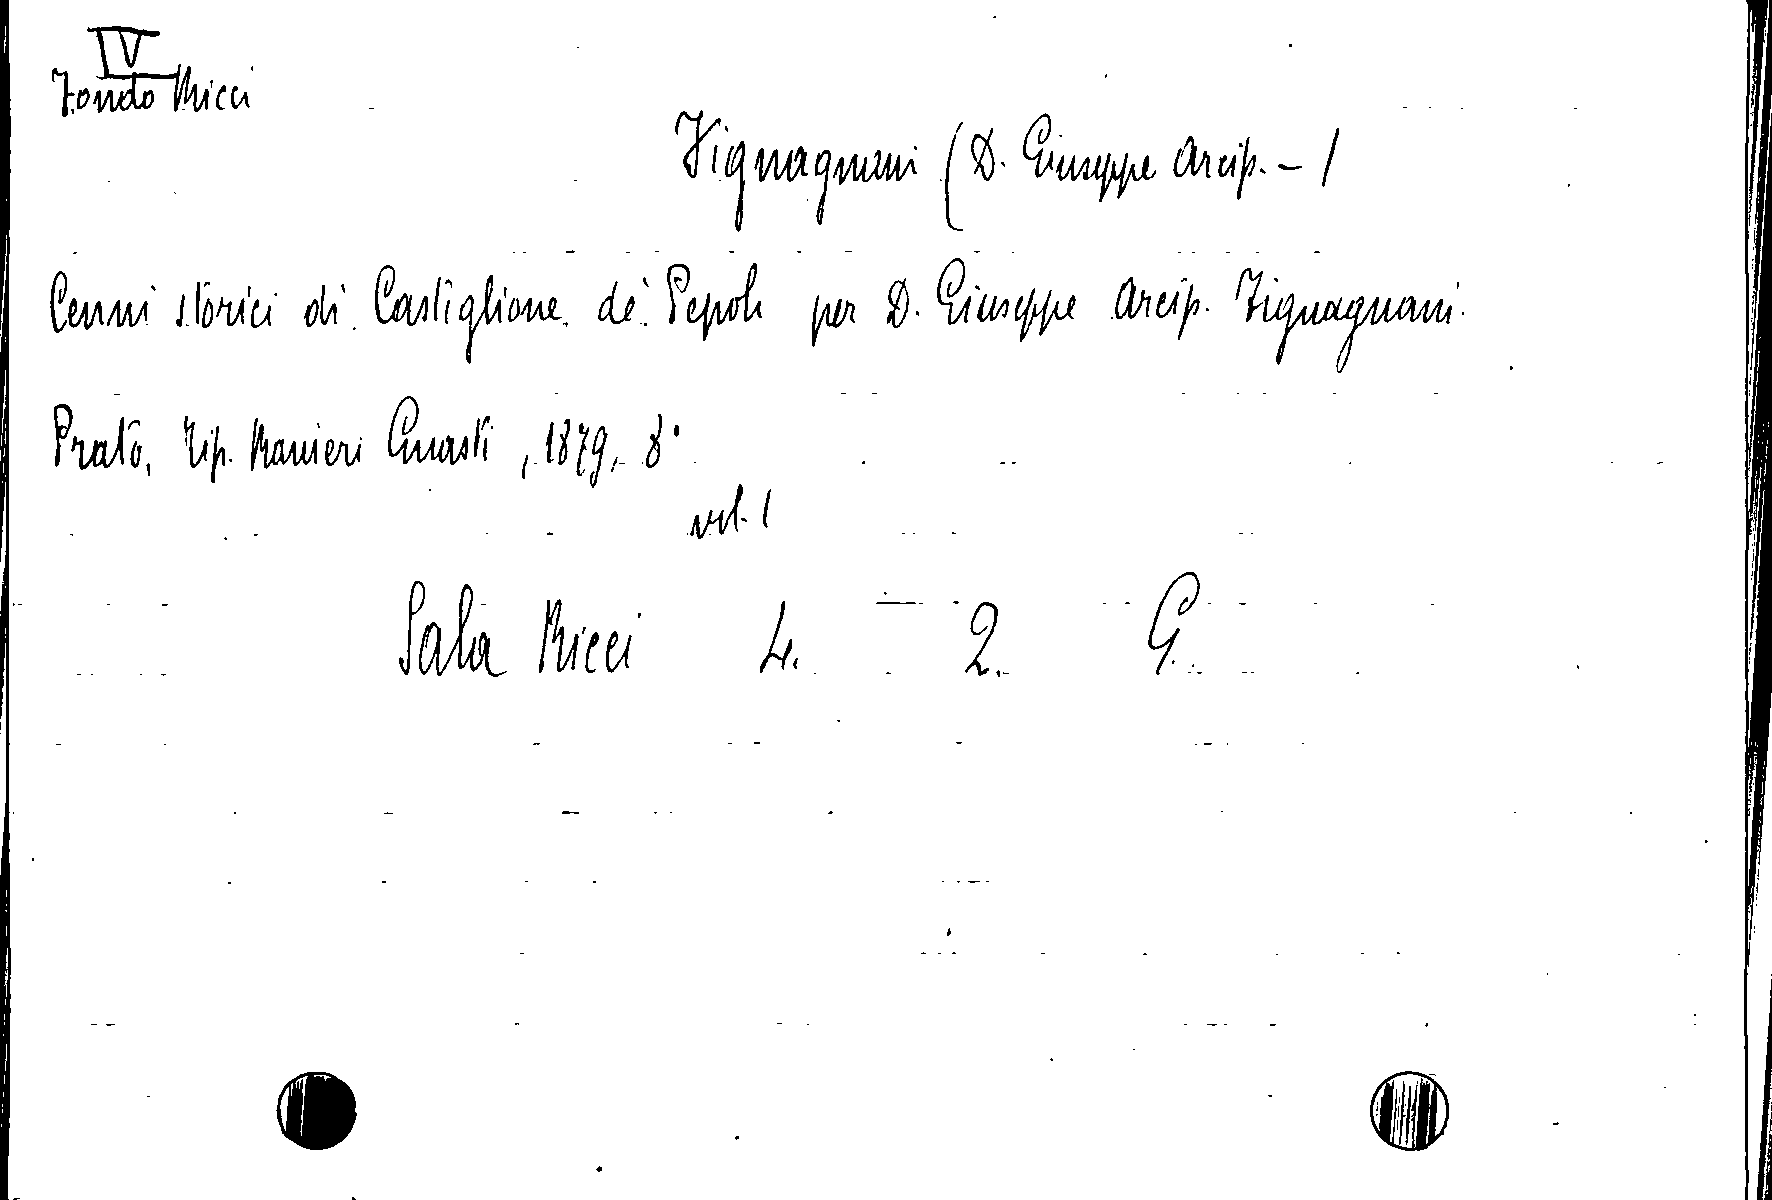 IV
Fondo Ricci
Tignagnani (D. Giuseppe Arcip. - /
Cenni storici di Castiglione de' Pepoli per D. Giuseppe Arcip. Tignagnani.
Prato, Tip. Ranieri Guasti, 1879, 8°
vol. 1
Sala Ricci 4. 2. G.